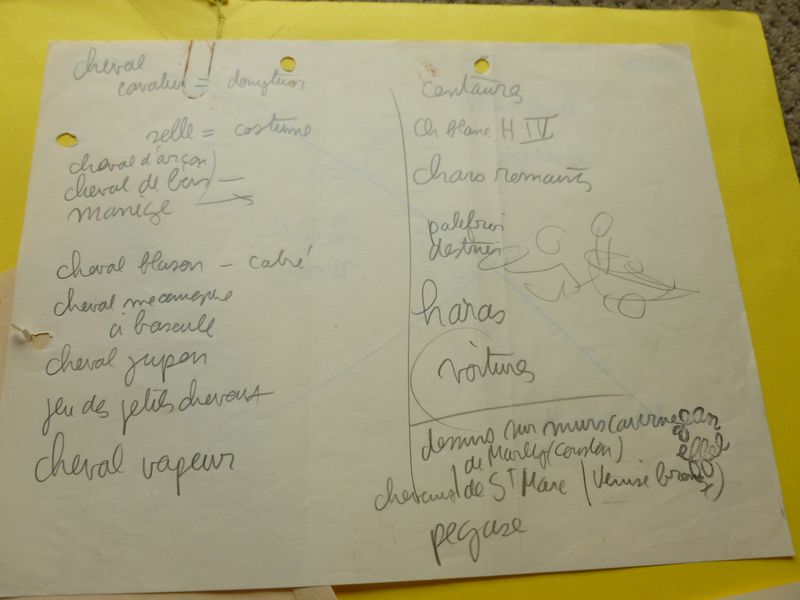 cheval
cavalier = dompteur
selle = costume
cheval d'arçon
cheval de bois —
manège
cheval blason – cabré
cheval mecanique
à bascule
cheval jupon
jeu des petits chevaux
cheval vapeur
centaure
Ch blanc H IV
chars romains
palefroi
destrier
haras
voitures
dessins sur murs caverne
de Marly (Couston)
chevaux de St Marc (Venise bronze)
pegase